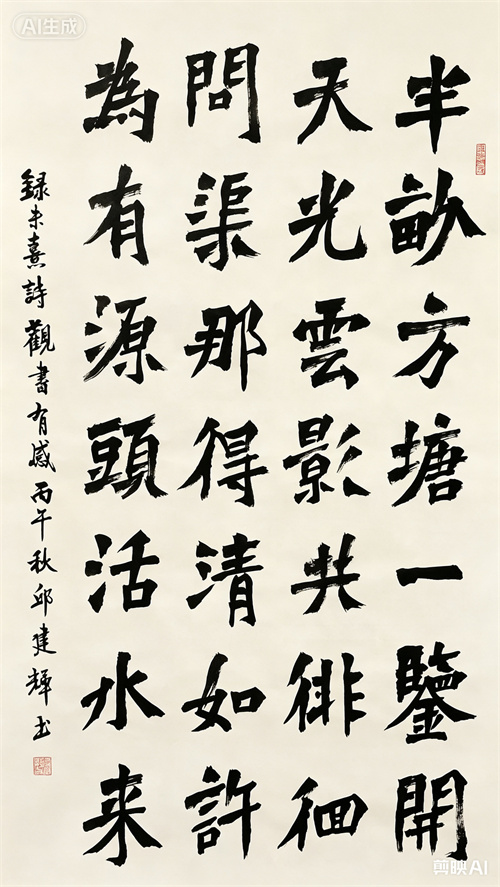 半畝方塘一鑒開
天光雲影共徘徊
問渠那得清如許
為有源頭活水来
録朱熹詩觀書有感丙午秋邱建輝书
AI生成
剪映AI